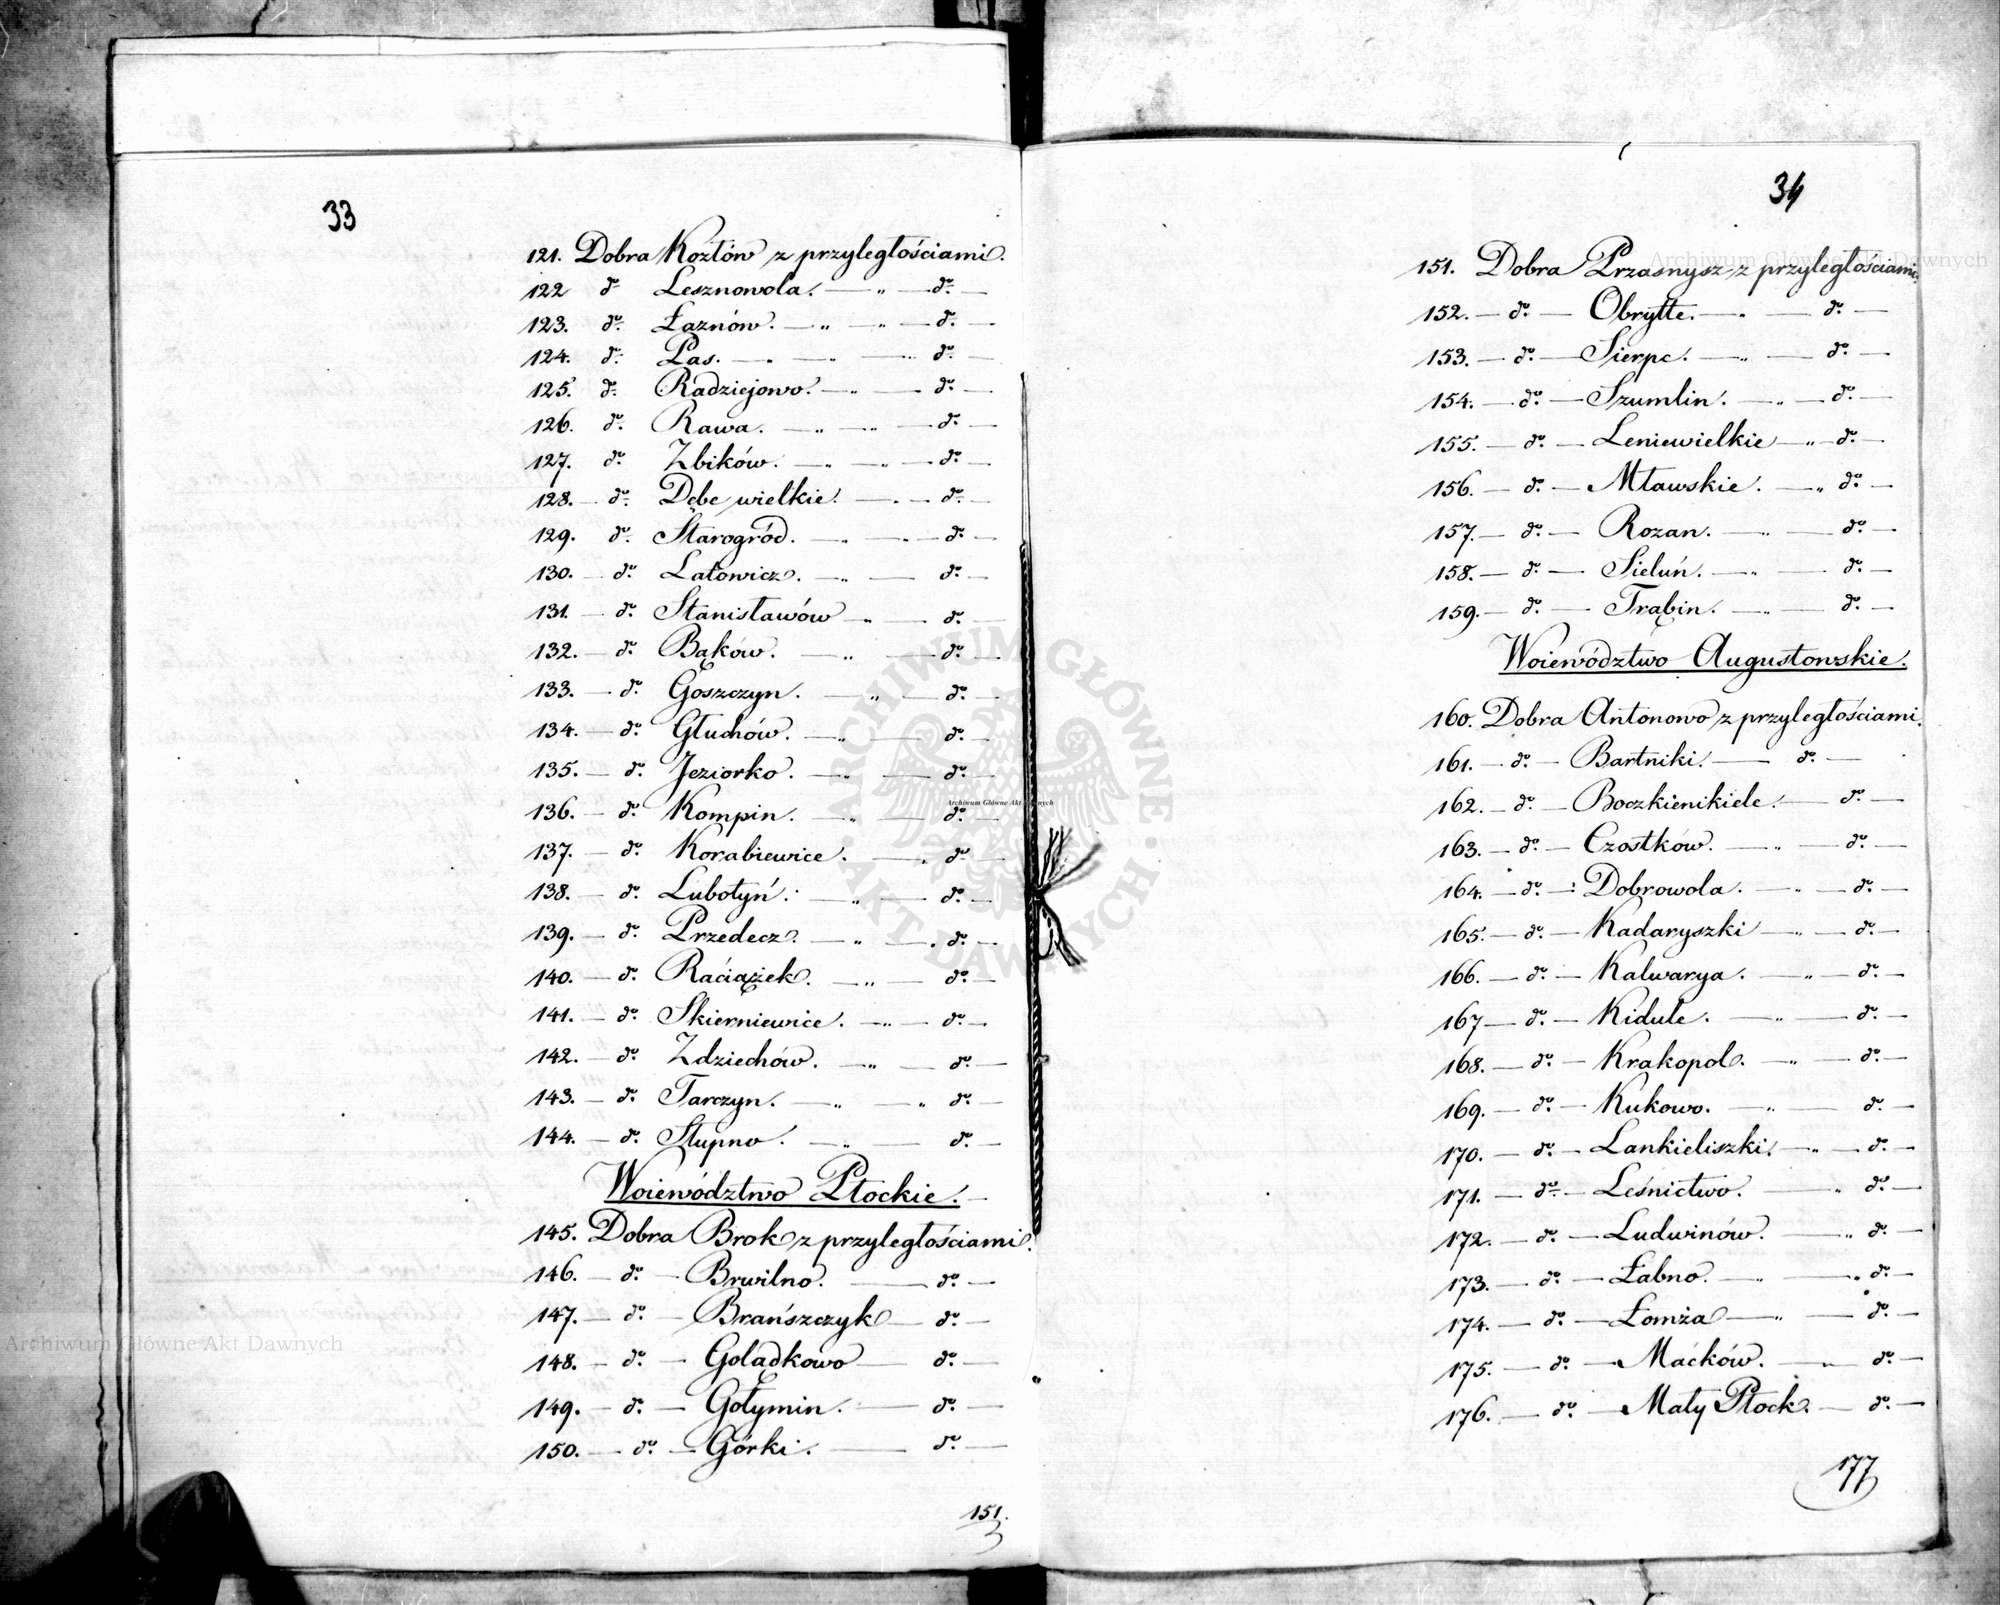 33
121. Dobra Kozłów z przyległościami.
122 do Lesznowola. — " — do. —
123. do. Łaznów. — " — " — do. —
124. do. Łas. — " — " — do. —
125. do. Radziejowo. — " — do. —
126. do. Rawa. — " — " — do. —
127. do. Zbików. — " — " — do. —
128. — do. Dębe wielkie. — " — do. —
129. do. Starogród. — " — " — do. —
130. — do. Latowicz. — " — do. —
131. — do. Stanisławów " — do. —
132. — do. Bąków. — " — do. —
133. — do. Goszczyn. — " — do. —
134. — do. Głuchów. — " — do. —
135. — do. Jeziorko. — " — do. —
136. — do. Kompin. — " — do. —
137. — do. Korabiewice. — " do. —
138. — do. Lubotyń. — " — do. —
139. — do. Przedecz. — " — do. —
140. — do. Raciążek. — " — do. —
141. — do. Skierniewice. — " — do. —
142. — do. Zdziechów. — " — do. —
143. — do. Tarczyn. — " — " do. —
144. — do. Słupno. — " — do. —
Woiewództwo Płockie. —
145. Dobra Brok z przyległościami.
146. — do. — Brwilno. — do. —
147. — do. — Brańszczyk — do. —
148. — do. — Golądkowo — do. —
149. — do. — Gołymin. — do. —
150. — do. — Górki. — do. —
151.
34
151. Dobra Przasnysz z przyległościami.
152. — do. — Obrytte. — " — do. —
153. — do. — Sierpc. — " — do. —
154. — do. — Szumlin. — " — do. —
155. — do. — Leniewielkie — " — do. —
156. — do. — Mławskie. — " do. —
157. — do. — Rozan. — " — do. —
158. — do. — Sieluń. — " — do. —
159. — do. — Trąbin. — " — do. —
Woiewództwo Augustowskie.
160. Dobra Antonowo z przyległościami.
161. — do. — Bartniki. — do. —
162. — do. — Boczkienikiele. — do. —
163. — do. — Czostków. — " — do. —
164. — do. — Dobrowola. — " — do. —
165. — do. — Kadaryszki — " — do. —
166. — do. — Kalwarya. — " — do. —
167 — do. — Kidule. — " — do. —
168. — do. — Krakopol. — " — do. —
169. — do. — Kukowo. — " — do. —
170. — do. — Lankieliszki. — " — do. —
171. — do. — Leśnictwo. — " do. —
172. — do. — Ludwinów. — " do. —
173. — do. — Łabno. — " — " do. —
174. — do. — Łomża — " — do. —
175. — do. — Maćków. — " — do. —
176. — do. — Mały Płock. — do. —
177
Archiwum Główne Akt Dawnych
Archiwum Główne Akt Dawnych
Archiwum Główne Akt Dawnych
ARCHIWUM GŁÓWNE AKT DAWNYCH